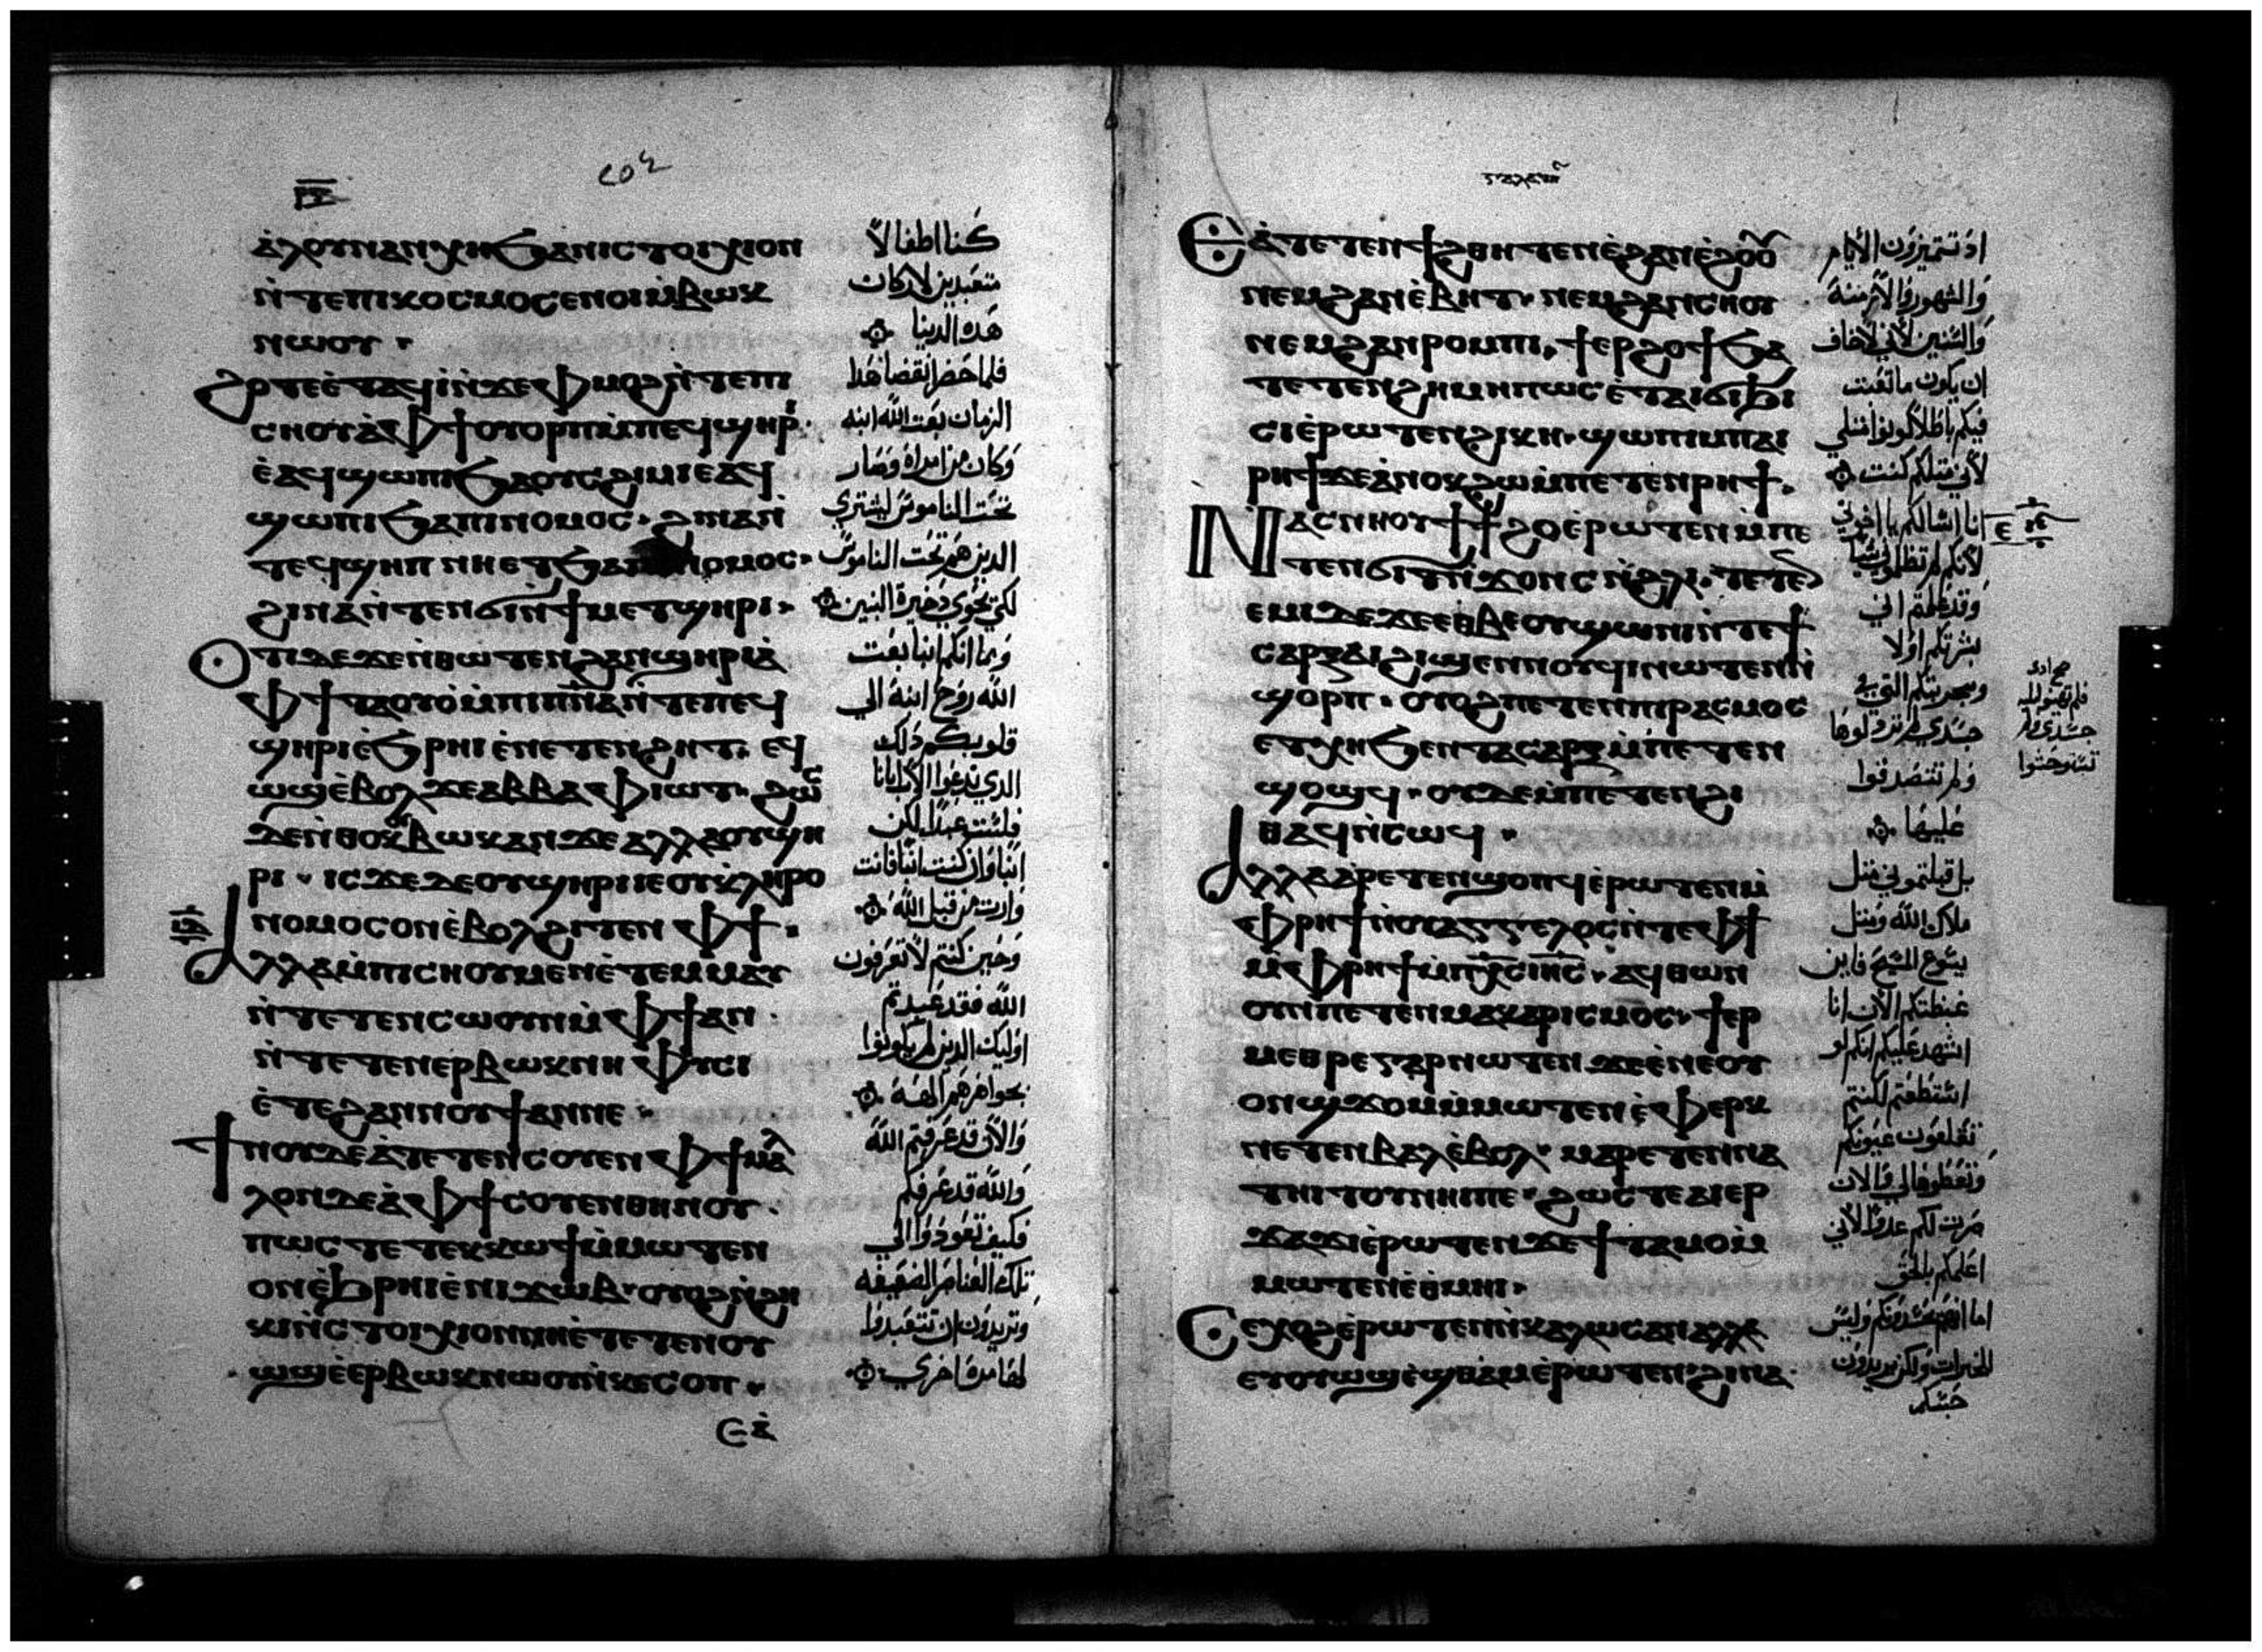 ⲁ̀ⲗⲟⲩⲛⲁⲛⲭⲏϧⲁⲛⲓⲥⲧⲟⲓⲭⲓⲟⲛ
ⲛ̀ⲧⲉⲡⲓⲕⲟⲥⲙⲟⲥⲉⲛⲟⲓⲙ̀ⲃⲱⲕ
ⲛⲱⲟⲩ
ϩⲟⲧⲉⲉ̀ⲧⲁϥⲓ̀ⲛ̀ϫⲉⲫⲙⲟϩⲛ̀ⲧⲉⲡⲓ
ⲥⲏⲟⲩⲁ̀ⲫϯⲟⲩⲟⲣⲡⲙ̀ⲡⲉϥϣⲏⲣⲓ
ⲉ̀ⲁϥϣⲱⲡⲓϧⲁⲟⲩⲥϩⲓⲙⲓⲉⲁϥ
ϣⲱⲡⲓϧⲁⲡⲓⲛⲟⲙⲟⲥ ϩⲓⲛⲁⲛ̀
ⲧⲉϥϣⲏⲡ ⲛⲏⲉⲧϧⲁⲡⲓⲛⲟⲙⲟⲥ
ϩⲓⲛⲁⲛ̀ⲧⲉⲛϭⲓⲛ̀ϯⲙⲉⲧϣⲏⲣⲓ
ⲟⲧⲓⲇⲉϫⲉⲛ̀ⲑⲱⲧⲉⲛϩⲁⲛϣⲏⲣⲓⲁ̀
ⲫϯⲧⲁⲟⲩⲟ̀ⲙ̀ⲡⲓⲡ̅ⲛ̅ⲁ̅ⲛ̀ⲧⲉⲡⲉϥ
ϣⲏⲣⲓⲉ̀ϧⲣⲏⲓⲉ̀ⲛⲉⲧⲉⲛϩⲏⲧ ⲉϥ
ⲱϣⲉ̀ⲃⲟⲗϫⲉⲁⲃⲃⲁⲫⲓⲱⲧ ϩⲱⲥ
ϫⲉⲛ̀ⲑⲟⲕⲟⲩⲃⲱⲕⲁⲛϫⲉⲁⲗⲗⲁⲟⲩϣⲏ
ⲣⲓ ⲓⲥϫⲉⲇⲉⲟⲩϣⲏⲣⲓⲓⲉⲟⲩⲕ̀ⲗⲏⲣⲟ
ⲛⲟⲙⲟⲥⲟⲛⲉ̀ⲃⲟⲗϩⲓⲧⲉⲛ ⲫϯ
ⲁⲗⲗⲁⲙ̀ⲡⲓⲥⲏⲟⲩⲙⲉⲛⲉ̀ⲧⲉⲙⲙⲁⲩ
ⲛ̀ⲧⲉⲧⲉⲛⲥⲱⲟⲩⲛⲙ̀ⲫϯⲁⲛ
ⲛ̀ⲧⲉⲧⲉⲛⲉⲣⲃⲱⲕⲛⲏ ⲫⲩⲥⲓ
ⲉ̀ⲧⲉϩⲁⲛⲛⲟⲩϯⲁⲛⲛⲉ
ϯⲛⲟⲩⲇⲉⲁ̀ⲧⲉⲧⲉⲛⲥⲟⲩⲉⲛⲫϯⲙⲁ
ⲗⲟⲛⲇⲉⲁ̀ⲫϯⲥⲟⲩⲉⲛⲑⲏⲛⲟⲩ
ⲡⲱⲥⲧⲉⲧⲉⲕⲕⲱϯⲙ̀ⲙⲱⲧⲉⲛ
ⲟⲛⲉ̀ϧⲣⲏⲓⲉ̀ⲛⲓϫⲱⲃ ⲟⲩⲟϩⲛ̀ϩⲏ
ⲕⲓⲛ̀ⲥⲧⲟⲓⲭⲓⲟⲛⲛⲏⲉ̀ⲧⲉⲧⲉⲛⲟⲩ
ⲱϣⲉ̀ⲉⲣⲃⲱⲕⲛⲱⲟⲩⲛ̀ⲕⲉⲥⲟⲡ
كنا اطفالاً
متعبدين لاركان
هذه الدينا
فلما حضر انقضا هذا
الزمان بعت الله ابنه
وكان من امراة وصار
تحت الناموس ليشتري
الدين هم تحت الناموس
لكي نحوي دخيرة البنين
وبما انكم ابنا بعت
الله روح ابنه الي
قلوبكم دلك
الدي تدعوا الاب ابانا
فلست عبداً لكن
ابناً وان كنت ابناً فانت
وارت من قبل الله
وحين كنتم لا تعرفون
الله فقد عبدتم
اوليك الدين لم يكونوا
بجواهرهم الهه
والان قد عرفتم الله
والله قد عرفكم
فكيف تعودوا الي
تلك العناصر الضعيفه
وتريدون ان تتعبدوا
لها مرة اخري
ⲅⲁⲗⲁⲧⲏⲥ
ⲉⲁ̀ⲧⲉⲧⲉⲛϯϩⲑⲏⲧⲉⲛⲉ̀ϩⲁⲛⲉ̀ϩⲟⲟⲩ
ⲛⲉⲙϩⲁⲛⲉ̀ⲃⲏⲧ ⲛⲉⲙϩⲁⲛⲥⲏⲟⲩ
ⲛⲉⲙϩⲁⲛⲣⲟⲙⲡⲓ ϯⲉⲣϩⲟϯϧⲁ
ⲧⲉⲧⲉⲛϩⲏⲙⲏⲡⲱⲥⲉ̀ⲧⲁⲓϭⲓϧⲓ
ⲥⲓⲉ̀ⲣⲱⲧⲉⲛϩⲓⲕⲏ ϣⲱⲡⲓⲙ̀ⲡⲁⲓ
ⲣⲏϯϫⲉⲁ̀ⲛⲟⲕϩⲱⲙ̀ⲡⲉⲧⲉⲛⲣⲏϯ
ⲛⲁⲥⲛⲏⲟⲩϯϯϩⲟⲉ̀ⲣⲱⲧⲉⲛ ⲙ̀ⲡⲉ
ⲧⲉⲛϭⲓⲧⲛ̀ϫⲟⲛⲥ ⲛ̀ϩⲗⲓ ⲧⲉⲧⲉⲛ
ⲉⲙⲓⲇⲉϫⲉⲉⲑⲃⲉⲟⲩϣⲱⲛⲓⲛ̀ⲧⲉϯ
ⲥⲁⲣⲝⲁⲓϩⲓϣⲉⲛⲛⲟⲩϥⲓⲛⲱⲧⲉⲛⲛ̀
ϣⲟⲣⲡ ⲟⲩⲟϩⲡⲉⲧⲉⲛⲡⲓⲣⲁⲥⲙⲟⲥ
ⲉⲧⲭⲏϧⲉⲛⲧⲁⲥⲁⲣⲝⲙ̀ⲡⲉⲧⲉⲛ
ϣⲟϣϥ ⲟⲩⲇⲉⲙ̀ⲡⲉⲧⲉⲛϩⲓ
ⲑⲁϥⲛ̀ⲥⲱϥ
ⲁⲗⲗⲁⲁ̀ⲣⲉⲧⲉⲛϣⲟⲡϥⲉ̀ⲣⲱⲧⲉⲛⲙ̀
ⲫⲣⲏϯⲛ̀ⲟⲩⲁⲅⲅⲉⲗⲟⲥⲛ̀ⲧⲉⲫϯ
ⲙ̀ⲫⲣⲏϯⲙ̀ⲡⲭ̅ⲥ̅ⲓⲏ̅ⲥ̅ ⲁϥⲑⲱⲛ
ⲟⲩⲛⲡⲉⲧⲉⲛⲙⲁⲕⲁⲣⲓⲥⲙⲟⲥ ϯⲉⲣ
ⲙⲉⲑⲣⲉⲅⲁⲣⲛⲱⲧⲉⲛ ϫⲉⲉ̀ⲛⲉⲟⲩ
ⲟⲛϣϫⲟⲙⲙ̀ⲙⲱⲧⲉⲛⲉ̀ⲫⲉⲣⲕ
ⲛⲉⲧⲉⲛⲃⲁⲗⲉ̀ⲃⲟⲗ ⲛⲁⲣⲉⲧⲉⲛⲛⲁ
ⲧⲏⲓⲧⲟⲩⲛⲏⲓⲡⲉ ϩⲱⲥⲧⲉⲁⲓⲉⲣ
ϫⲁϫⲓⲉ̀ⲣⲱⲧⲉⲛϫⲉϯⲧⲁⲙⲟⲙ̀
ⲙⲱⲧⲉⲛⲉ̀ⲑⲙⲏⲓ
ⲥⲉⲭⲟϩⲉ̀ⲣⲱⲧⲉⲛⲛ̀ⲕⲁⲗⲱⲥⲁⲛⲁⲗⲗⲁ
ⲉⲩⲟⲩⲱϣⲉ̀ϣⲑⲁⲙⲉ̀ⲣⲱⲧⲉⲛ ϩⲓⲛⲁ
اد تتميزون الأيام
والشهور والازمنة
والسنين لأني لاخاف
ان يكون ما تعبت
فيكم باطلا كونوا متلي
لأني متلكم كنت
انا اسالكم يا اخوتي
لأنكم لم تظلموني شيا
وقد علمتم اني
بشرتكم اولا
جسدي لم تزدلوها
ولم تتصدفوا
عليها
بل قبلتموني متل
ملاك الله ومتل
يسوع المسيح فاين
غبطتكم الان انا
اشهد عليكم انكم لو
استطعتم لكنتم
تقلعون عيونكم
وتعطوها لي فالان
صرت لكم عدوا لأني
اعلمكم بالحق
اما انهم يحسدونكم وليس
للخيرات ولكن يريدون
حبسكم